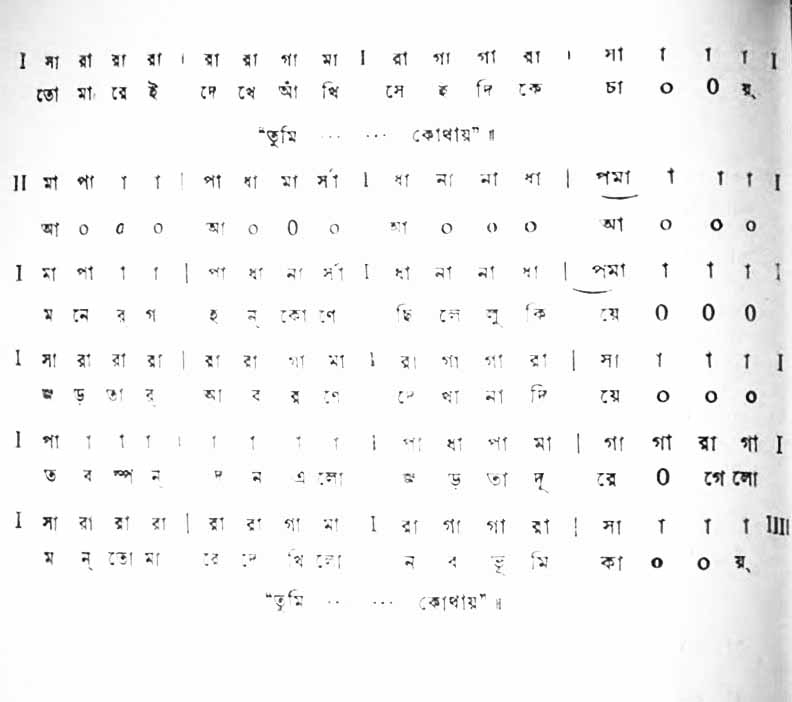 I সা রা রা রা । রা রা গা মা I রা গা গা রা । সা া া া I
তো মা রে ই দে খে আঁ খি সে ই দি কে চা ০ ০ য়্
“তুমি ··· ··· কোথায়” ॥
II মা পা া া | পা ধা মা র্সা I ধা না না ধা | পমা া া া I
আ ০ ০ ০ আ ০ ০ ০ আ ০ ০ ০ আ ০ ০ ০
I মা পা া া | পা ধা না র্সা I ধা না না ধা | পমা া া া I
ম নে র গ হ ন্ কো ণে ছি লে লু কি য়ে ০ ০ ০
I সা রা রা রা | রা রা গা মা I রা গা গা রা | সা া া া I
জ ড় তা র্ আ ব র ণে দে খা না দি য়ে ০ ০ ০
I পা া া া । া া া া I পা ধা পা মা | গা গা রা গা I
ত ব স্প ন্ দ ন এ লো জ ড় তা দূ রে ০ গে লো
I সা রা রা রা | রা রা গা মা I রা গা গা রা | সা া া া IIII
ম ন্ তো মা রে দে খি লো ন ব ভূ মি কা ০ ০ য়্
“তুমি ·· ··· কোথায়” ॥